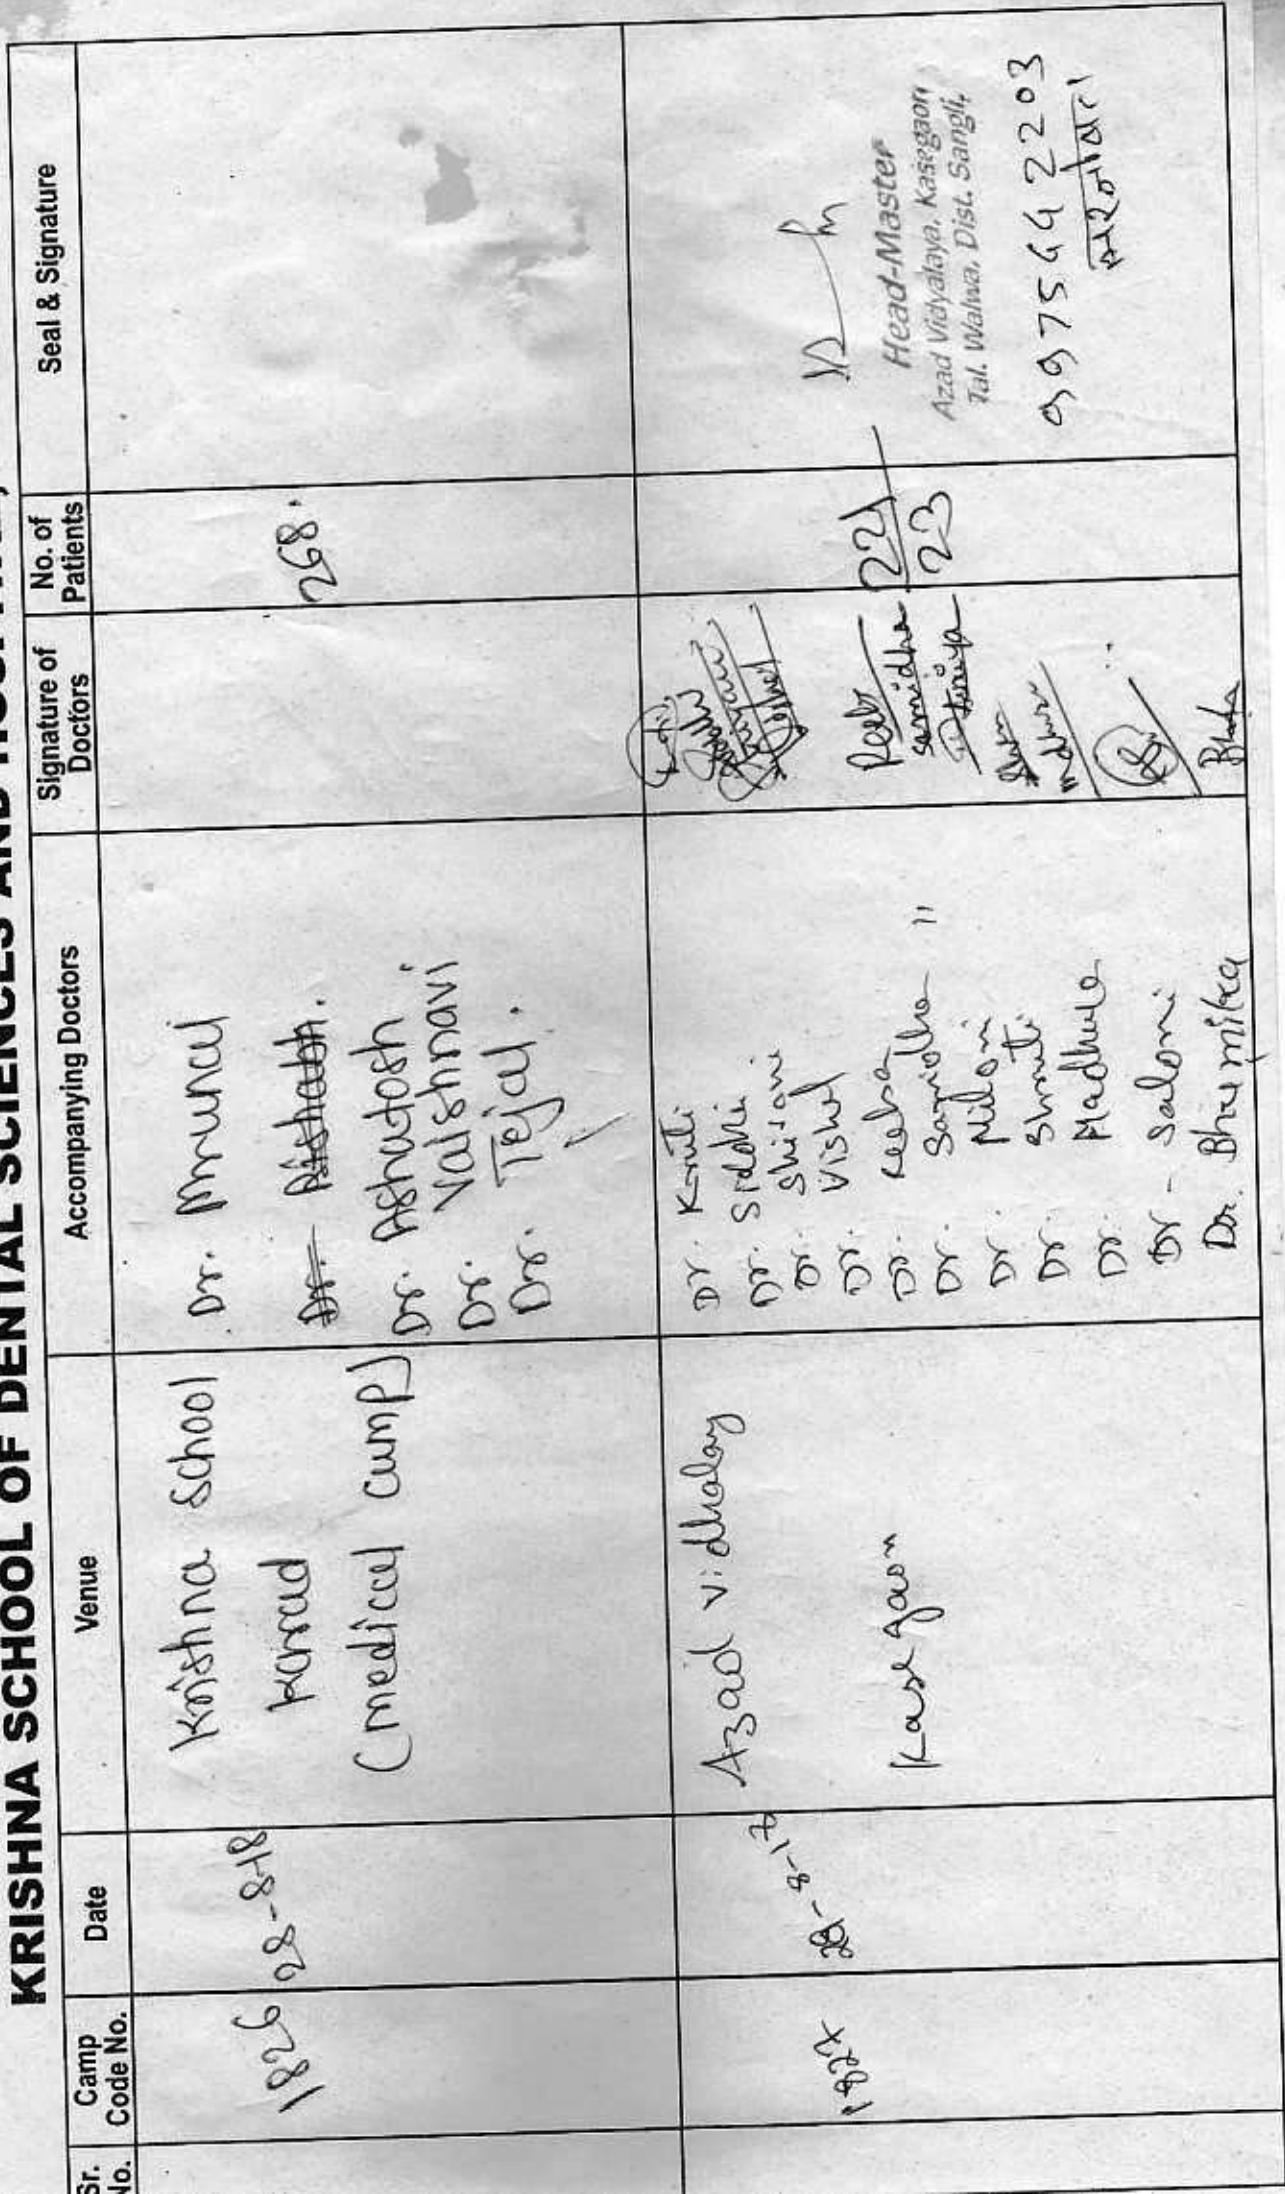 KRISHNA SCHOOL OF DENTAL SCIENCES AND
Sr. No.
Camp Code No.
Date
Venue
Accompanying Doctors
Signature of Doctors
No. of Patients
Seal & Signature
1826
28-8-18
Krishna School
Karad
(medical camp)
Dr. Mrunal
Dr. Rishabh.
Dr. Ashutosh
Dr. Vaishnavi
Dr. Tejal.
268.
1827
Azad Vidhalay
Kasegaon
Dr. Kruti
Dr. Siddhi
Dr. Shivani
Dr. Vishal
Dr. Reeba
Dr. Samidha "
Dr. Miloni
Dr. Shruti
Dr. Madhura
Dr - Salomi
Dr. Bhumika
Reeb
Samidha
221
23
Head-Master
Azad Vidyalaya, Kasegaon,
Tal. Walwa, Dist. Sangli.